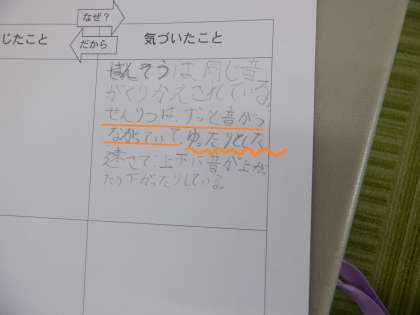 なぜ?
だから
じたこと
気づいたこと
ばんそうは、同じ音
がくりかえされている。
せんりつは、ずっと音がつ
ながっていて、ゆったりとした
速さで、上下に音が上がっ
たり下がったりしている。